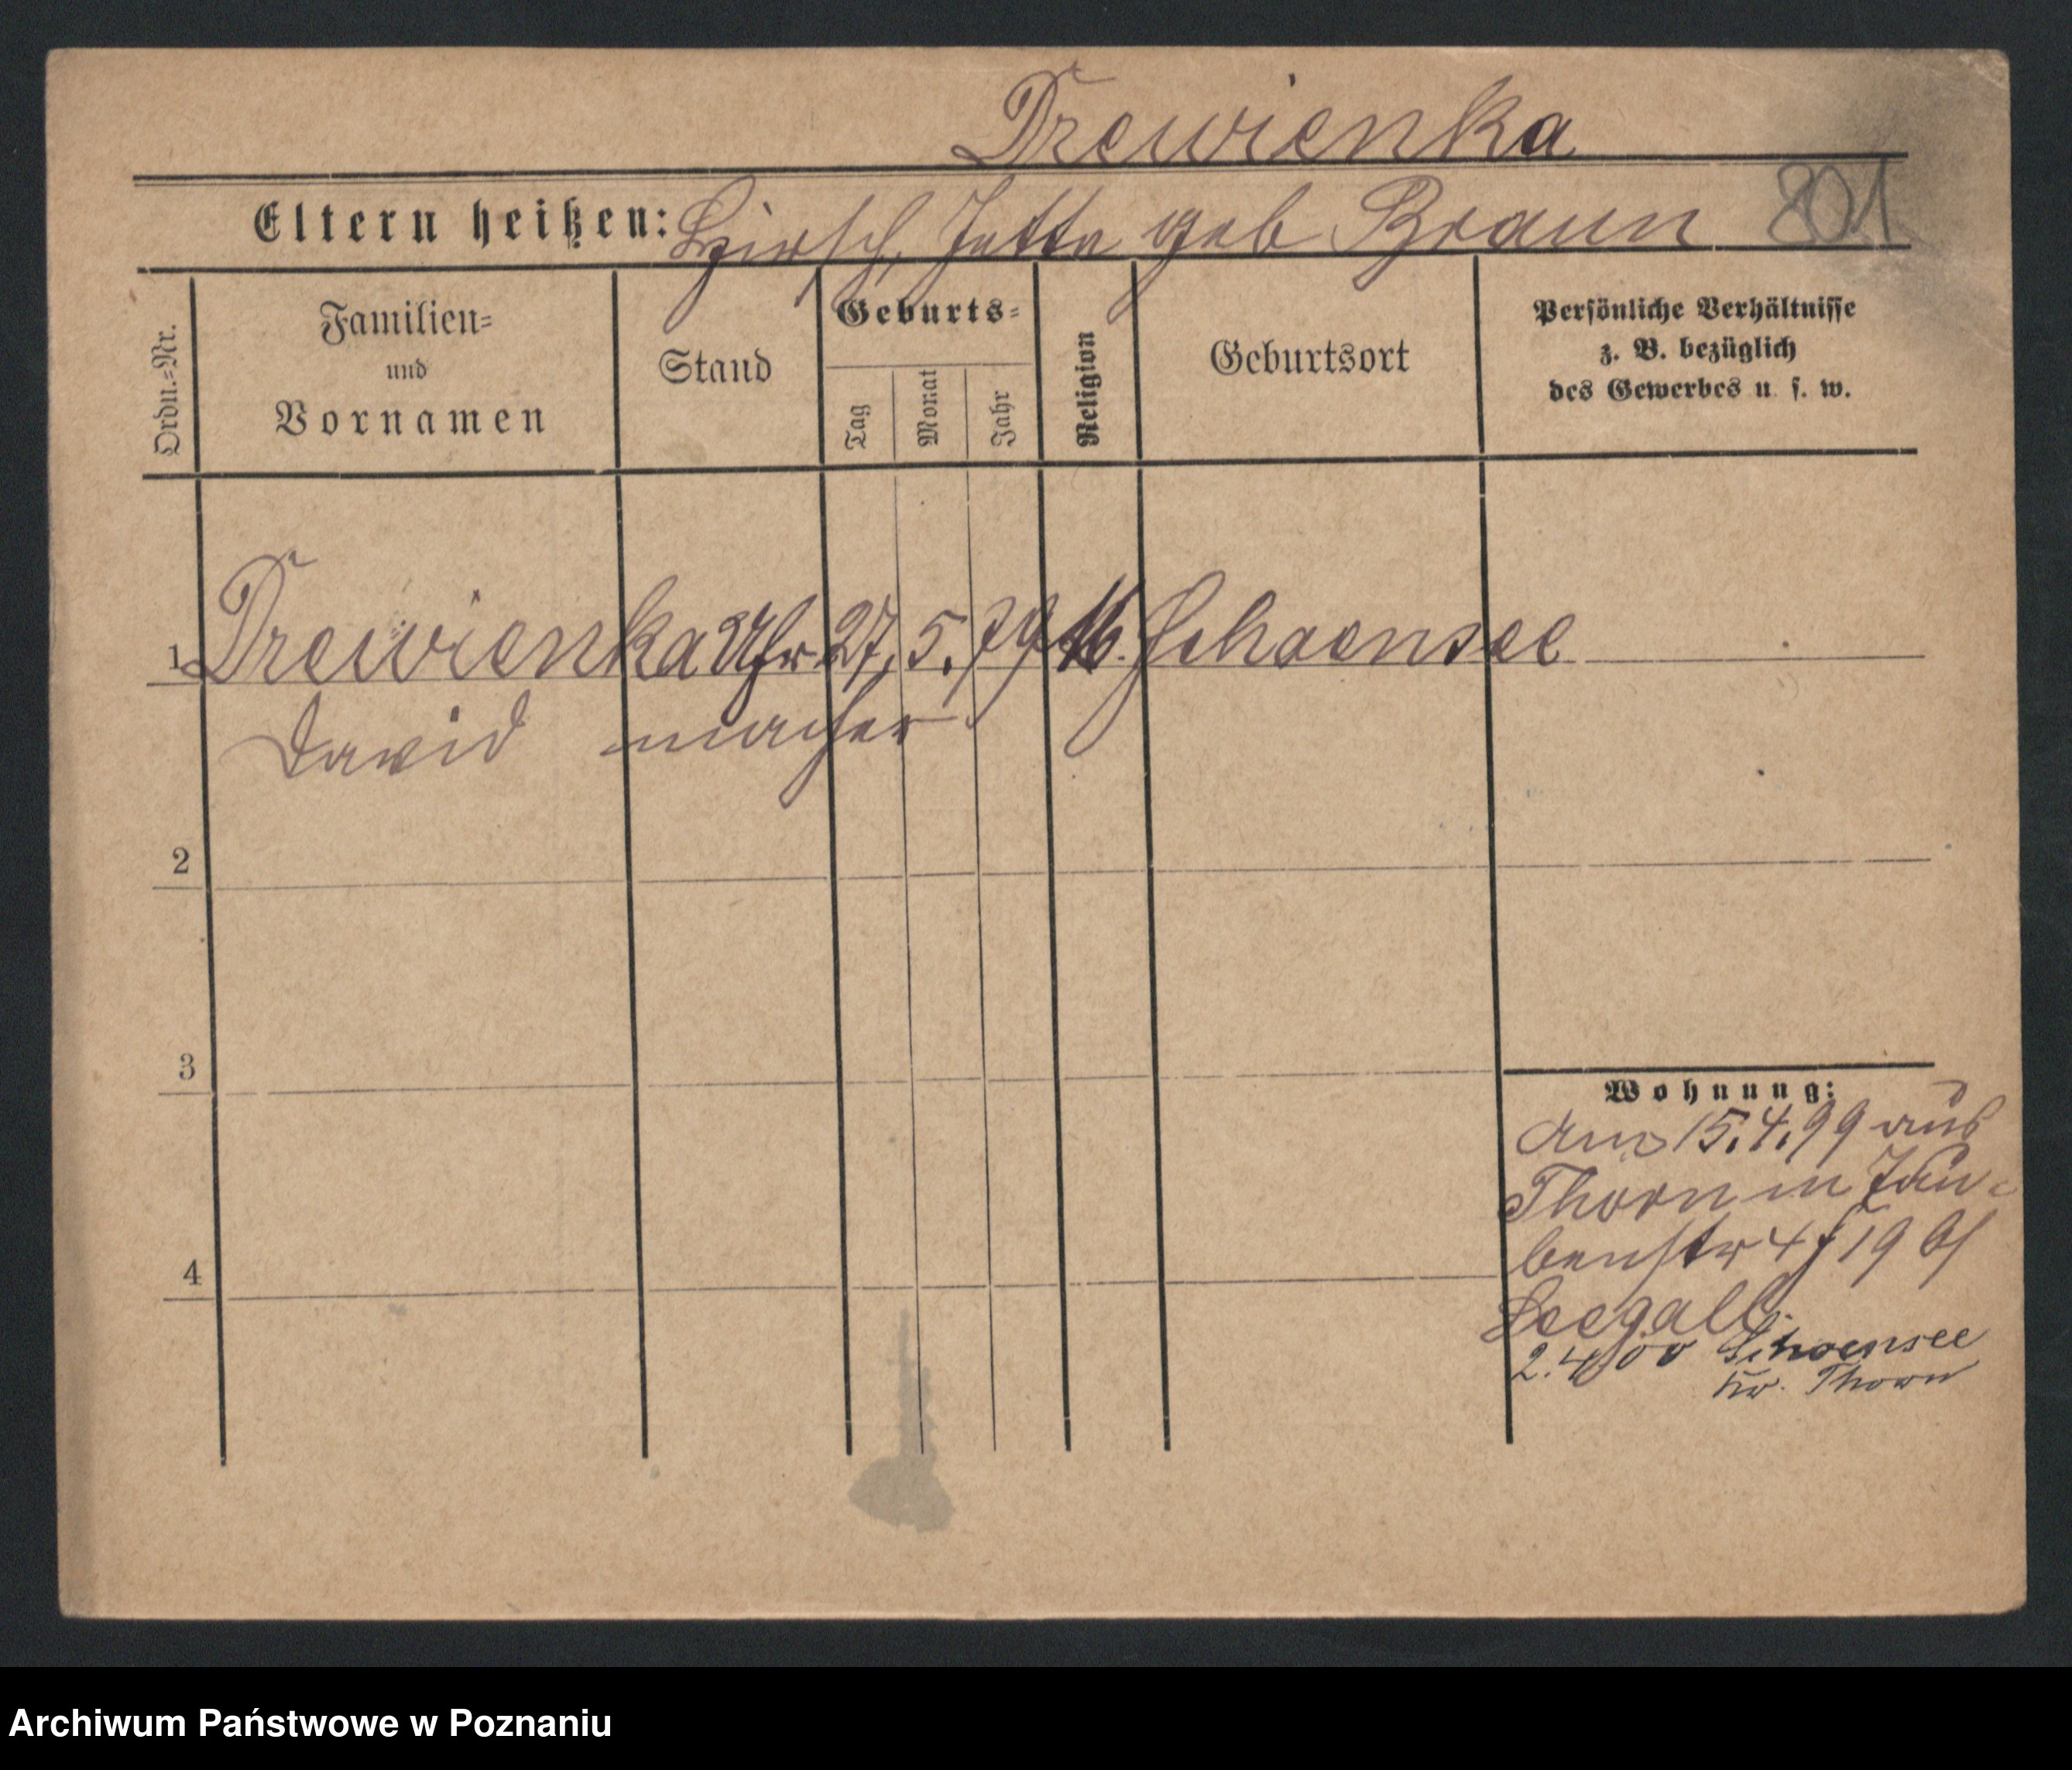 Drewienka
Eltern heißen: Hirsch, Jette geb Braun 801
Ordn.=Nr.
Familien=
und
Vornamen
Stand
Geburts=
Tag
Monat
Jahr
Religion
Geburtsort
Persönliche Verhältnisse
z. B. bezüglich
des Gewerbes u. s. w.
1 Drewienka Uhr 27, 5. 79 Schoensee
David macher
2
3
4
Wohnung:
Am 15.4.99 aus
Thorn in Tau-
benstr 4
2.4.00 Schoensee
Kr. Thorn
Archiwum Państwowe w Poznaniu